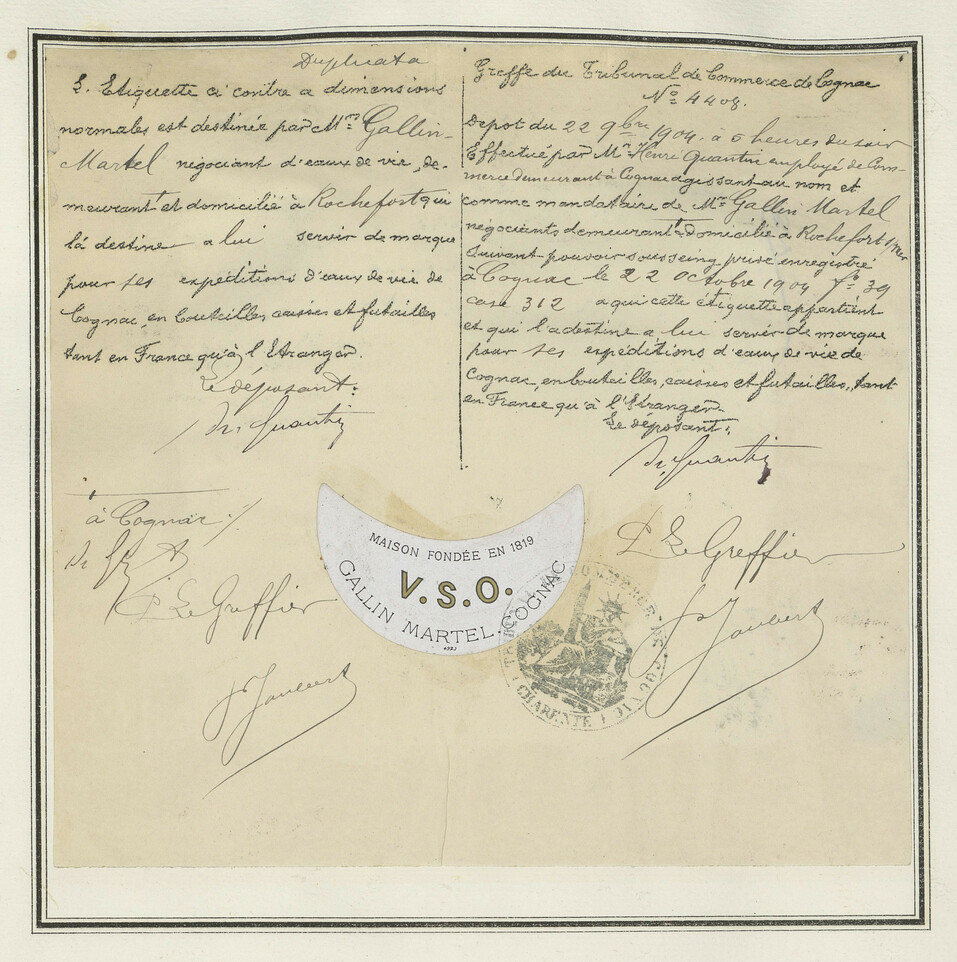 Duplicata
L. Etiquette ci contre a dimensions
normales est destinée par Mrs Gallin-
Martel négociant d'eaux de vie, de-
meurant et domicilié à Rochefort qui
la destine a lui servir de marque
pour ses expeditions d'eaux de vie de
Cognac, en bouteilles caisses et futailles
tant en France qu'à l'Etranger.
Le déposant:
Hri Quantin
à Cognac ./.
P. Le Greffier
Joubert
Greffe du Tribunal de Commerce de Cognac
No 4408.
Depot du 22 9bre 1904. à 5 heures du soir
Effectué par Mr Henri Quantin employé de Com-
merce demeurant à Cognac agissant au nom et
comme mandataire de Mrs Gallin Martel
négociants demeurant domicilié à Rochefort s/mer
suivant pouvoir sous seing privé enregistré
à Cognac le 22 Octobre 1904 fo 39
case 312 a qui cette étiquette appartient
et qui l'a destine a lui servir de marque
pour ses expéditions d'eaux de vie de
Cognac, en bouteilles, caisses et futailles, tant
en France qu'à l'Etranger.
Le déposant:
Hri Quantin
P. Le Greffier
Joubert
MAISON FONDÉE EN 1819
V.S.O.
GALLIN MARTEL. COGNAC
TRIBUNAL DE COMMERCE DE COGNAC
CHARENTE